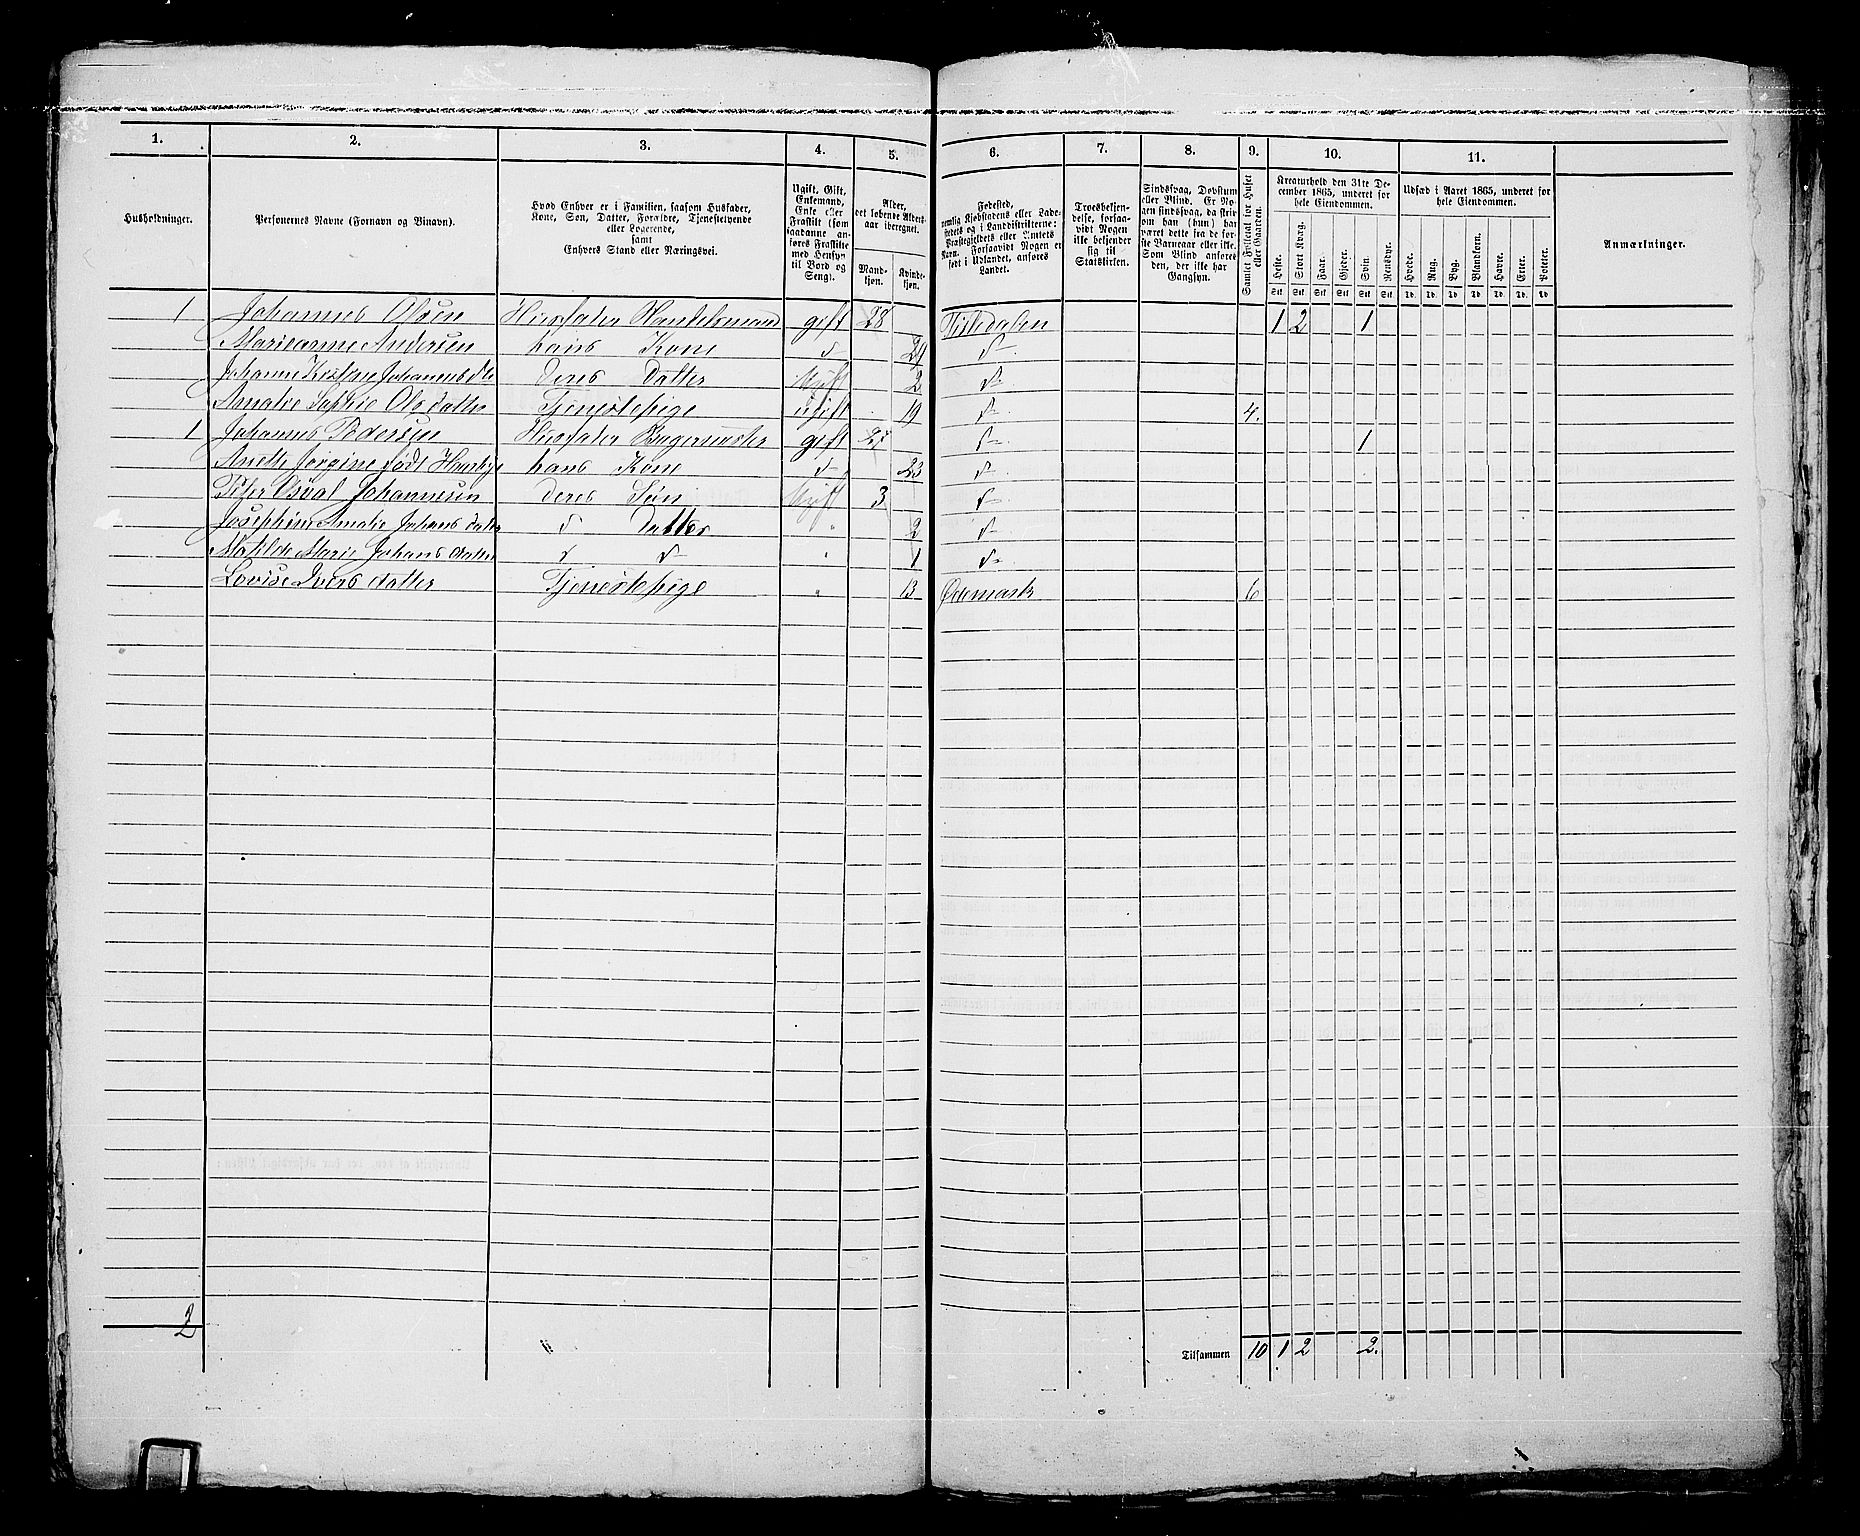 1. 2. 3. 4. 5. 6. 7. 8. 9. 10. 11.
Husholdninger.
Personernes Navne (Fornavn og Binavn).
Hvad Enhver er i Familien, saasom Husfader,
Kone, Søn, Datter, Forældre, Tjenestetyende
eller Logerende,
samt
Enhvers Stand eller Næringsvei.
Ugift, Gift,
Enkemand,
Enke eller
Fraskilt (som
saadanne an-
føres Fraskilte
med Hensyn
til Bord og
Seng).
Alder,
det løbende Alders-
aar iberegnet.
Mand-
kjøn.
Kvinde-
kjøn.
Fødested,
nemlig Kjøbstadens eller Lade-
stedets og i Landdistrikterne:
Præstegjeldets eller Amtets
Navn. Forsaavidt Nogen er
født i Udlandet, anføres
Landet.
Troesbekjen-
delse, forsaa-
vidt Nogen
ikke bekjender
sig til
Statskirken.
Sindssvag, Døvstum
eller Blind. Er No-
gen sindssvag, da skriv
om han (hun) har
været dette fra de før-
ste Barneaar eller ikke.
Som Blind anføres
den, der ikke har
Gangsyn.
Samlet Folketal for Huset
eller Gaarden.
Kreaturhold den 31te De-
cember 1865, underet for
hele Eiendommen.
Heste. Stort Kvæg. Faar. Gjeder. Svin. Rensdyr.
Stk Stk Stk Stk Stk Stk
Udsæd i Aaret 1865, underet for
hele Eiendommen.
Hvede. Rug. Byg. Blandkorn. Havre. Erter. Poteter.
Td. Td Td Td Td Td Td
Anmærkninger.
1 Johannes Olsen Huusfader Handelsmand gift 28 Tistedalen 1 2 1
Marieanne Andersen hans Kone d 29 d-
Johanne Kristine Johannesdtr deres Datter Ugift 2 d-
Amalie Sophie Olsdatter Tjenestepige ugift 19 d- 4.
1 Johannes Pedersen Huusfader Bagermester gift 27 d- 1
Anette Jørgine født hans Kone d 23 d-
Peter Osval Johannesen deres Søn Ugift 3 d-
Josephine Amalie Johansdatter d Datter " 2 d-
Matilde Marie Johansdatter d d- " 1 d-
Lovise Iversdatter Tjenestepige " 13 Ødemark 6
2
Tilsammen 10 1 2 2.